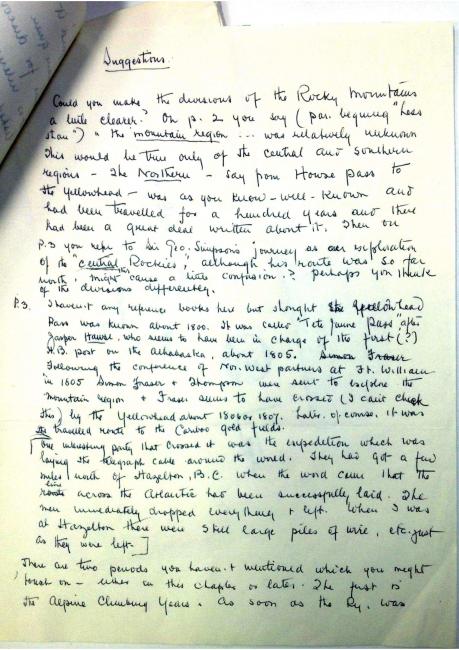 Suggestions.
Could you make the divisions of the Rocky Mountains
a little clearer? On p. 2 you say (par. beginning "Less
than") "the mountain region ... was relatively unknown
This would be true only of the central and southern
regions - The Northern - say from Howse Pass to
the Yellowhead - was as you know - well-known and
had been travelled for a hundred years and there
had been a great deal written about it. Then on
p. 3 you refer to Sir Geo. Simpson's journey as an exploration
of the "central Rockies", although his route was so far
north, might this cause a little confusion? perhaps you think
of the divisions differently.
P. 3. I haven't any reference books here but thought the Yellowhead
Pass was known about 1800. It was called "Tete Jaune Pass" after
Jasper Hawse, who seems to have been in charge of the first (?)
H.B. post on the Athabaska, about 1805. Simon Fraser
Following the conference of Nor. West partners at Ft. William
in 1805 Simon Fraser + Thompson were sent to explore the
mountain region + Fraser seems to have crossed (I can't check
this) by the Yellowhead about 1806 or 1807. Later, of course, it was
the travelled route to the Cariboo gold fields.
[One interesting party that crossed it was the expedition which was
laying the telegraph cable around the world. They had got a few
miles north of Hazelton, B.C. when the word came that the
line across the Atlantic had been successfully laid. The
men immediately dropped everything + left. When I was
at Hazelton there were still large piles of wire, etc. just
as they were left.]
There are two periods you haven't mentioned which you might
touch on - either in this chapter or later. The first is
the Alpine Climbing Years. As soon as the Ry. was